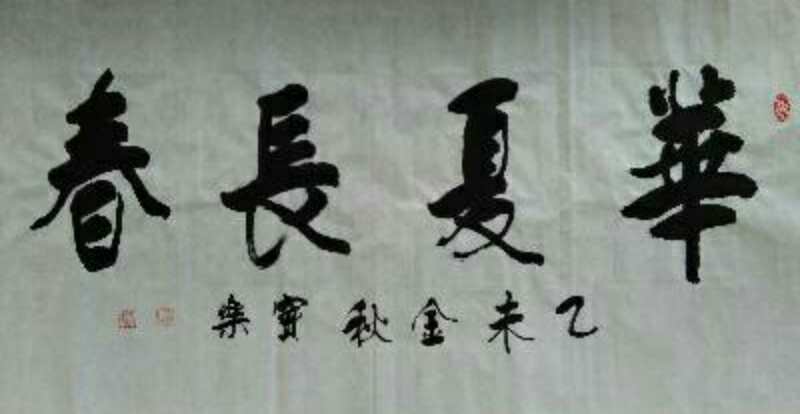 華夏長春
乙未金秋寶樂